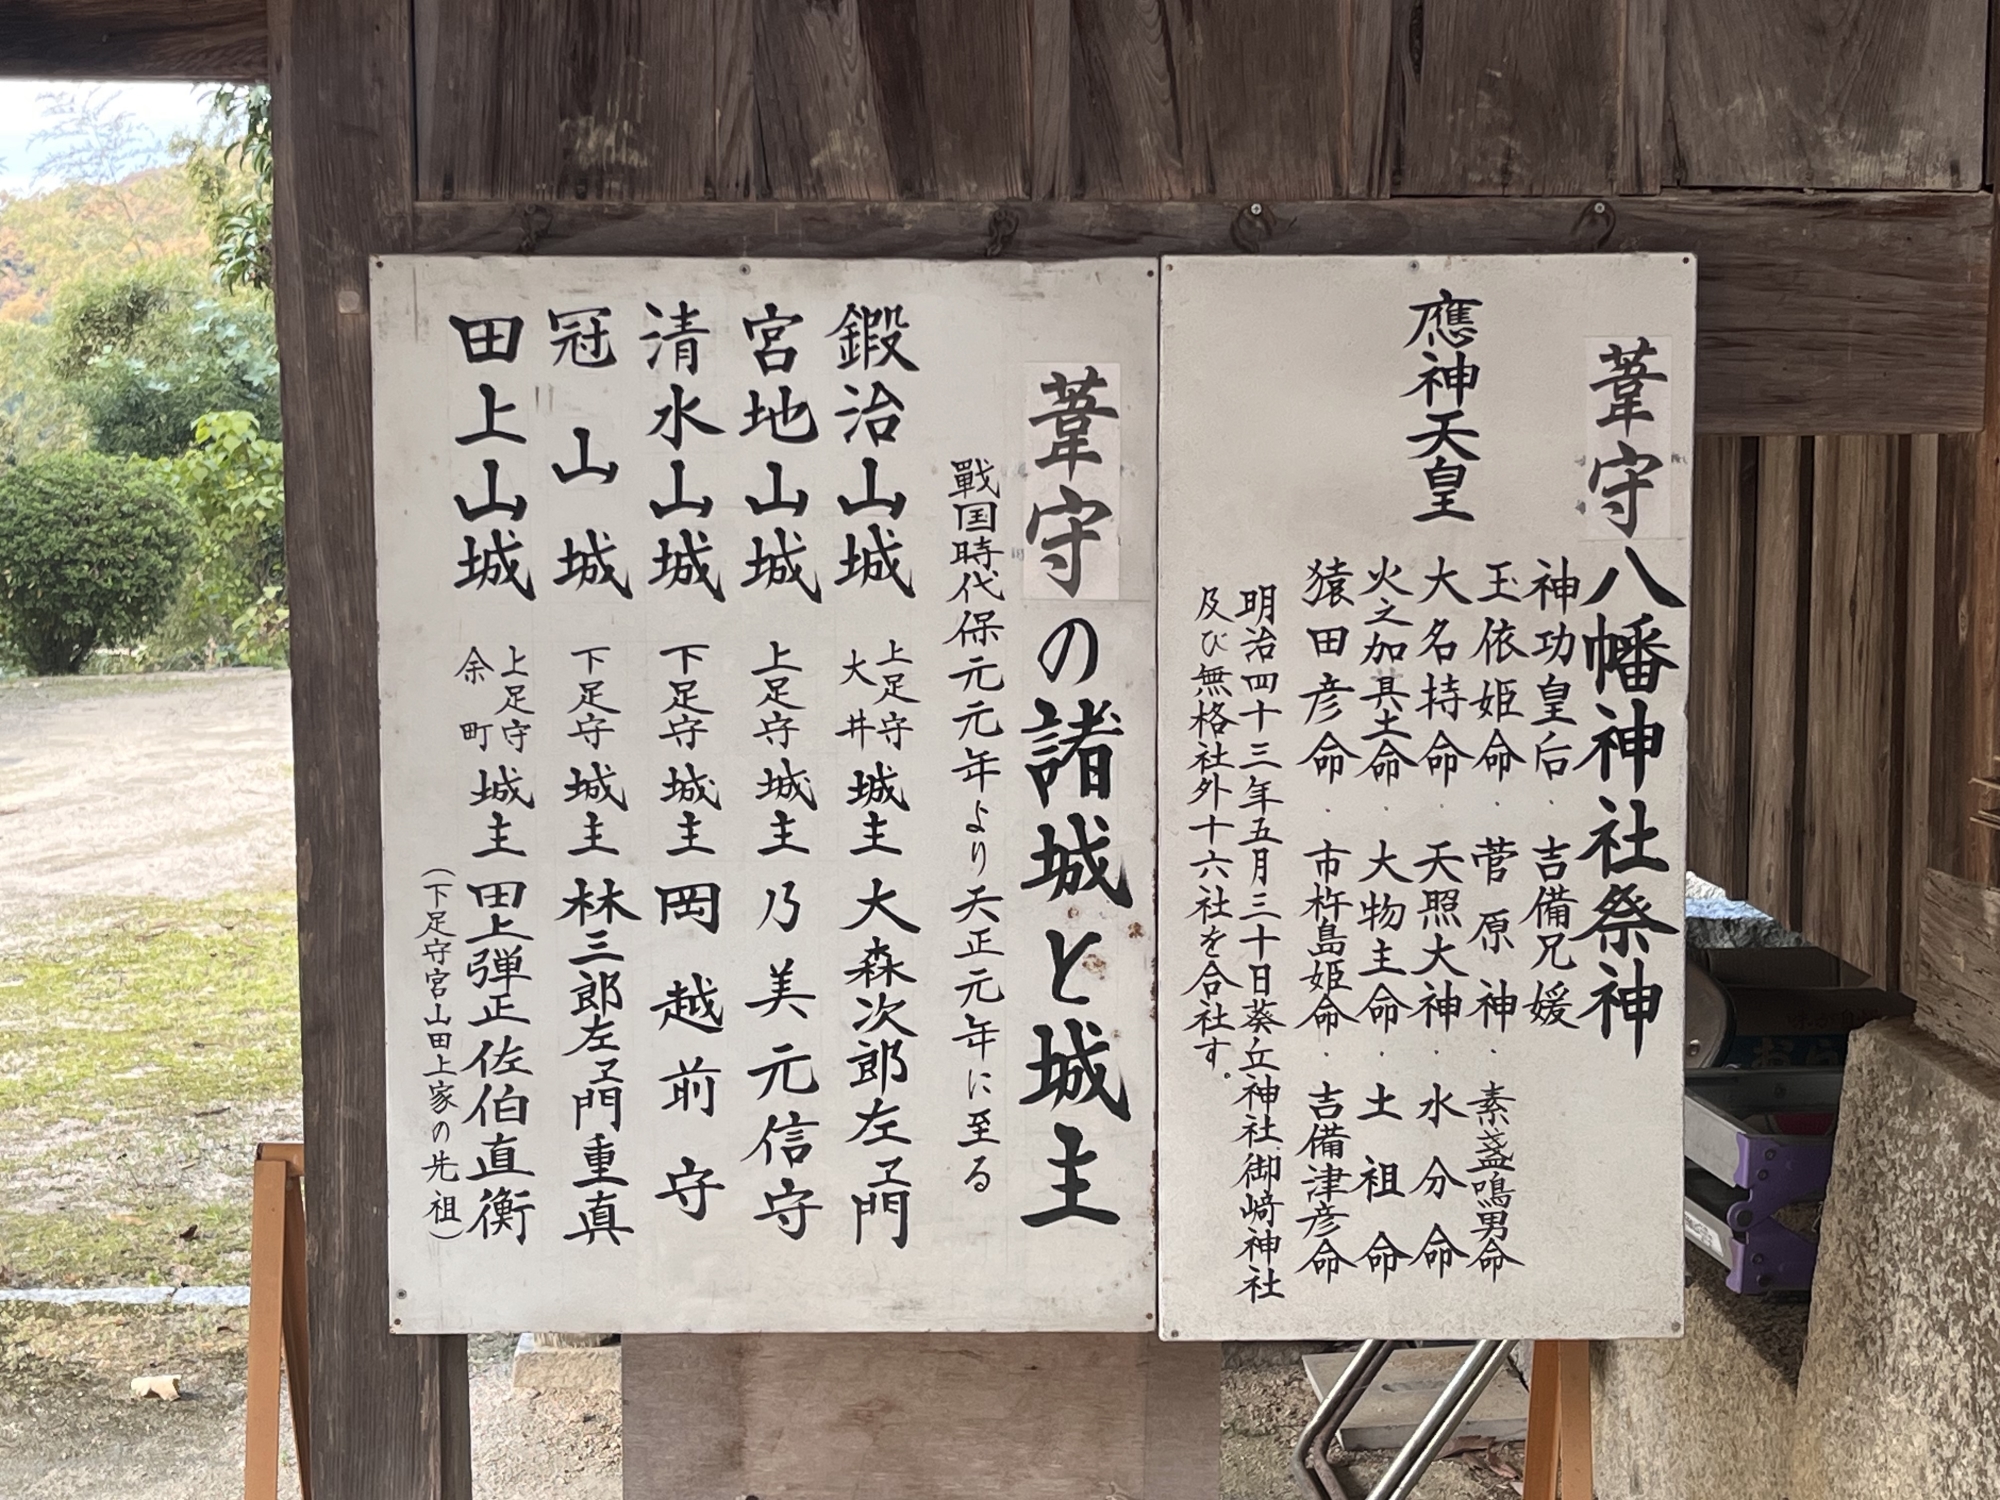 葦守八幡神社祭神
應神天皇
神功皇后・吉備兄媛
玉依姫命・菅原神・素盞鳴男命
大名持命・天照大神・水分命
火之加具土命・大物主命・土祖命
猿田彦命・市杵島姫命・吉備津彦命
明治四十三年五月三十日葵丘神社、御﨑神社
及び無格社外十六社を合社す。
葦守の諸城と城主
戰国時代保元元年より天正元年に至る
鍛治山城 上足守大井 城主 大森次郎左ヱ門
宮地山城 上足守 城主 乃美元信守
清水山城 下足守 城主 岡越前守
冠山城 下足守 城主 林三郎左ヱ門重真
田上山城 上足守余町 城主 田上弾正佐伯直衡
(下足守宮山田上家の先祖)